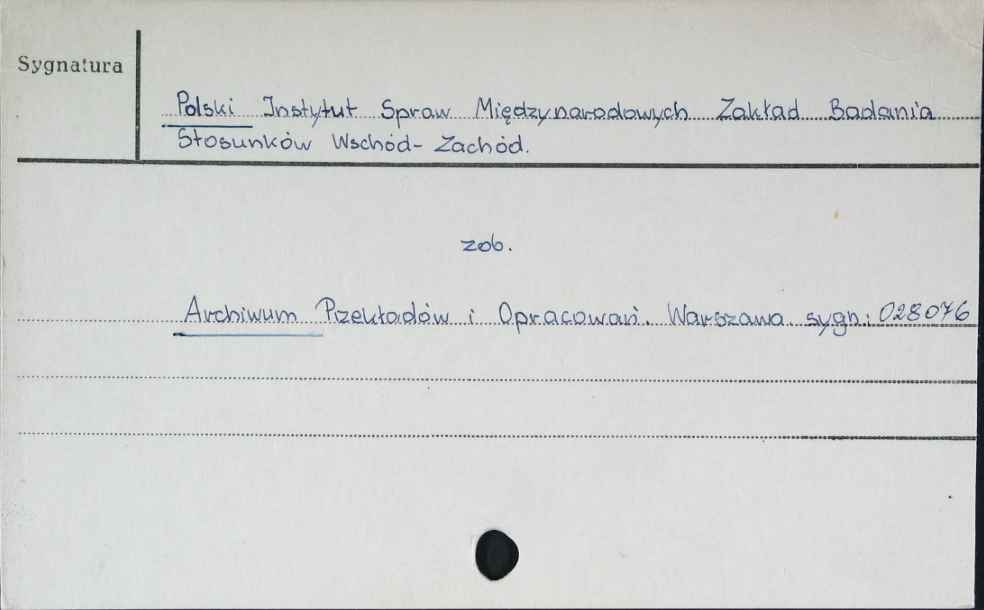 Sygnatura
Polski Instytut Spraw Międzynarodowych Zakład Badania
Stosunków Wschód-Zachód.
zob.
Archiwum Przekładów i Opracowań. Warszawa. sygn.: 028076